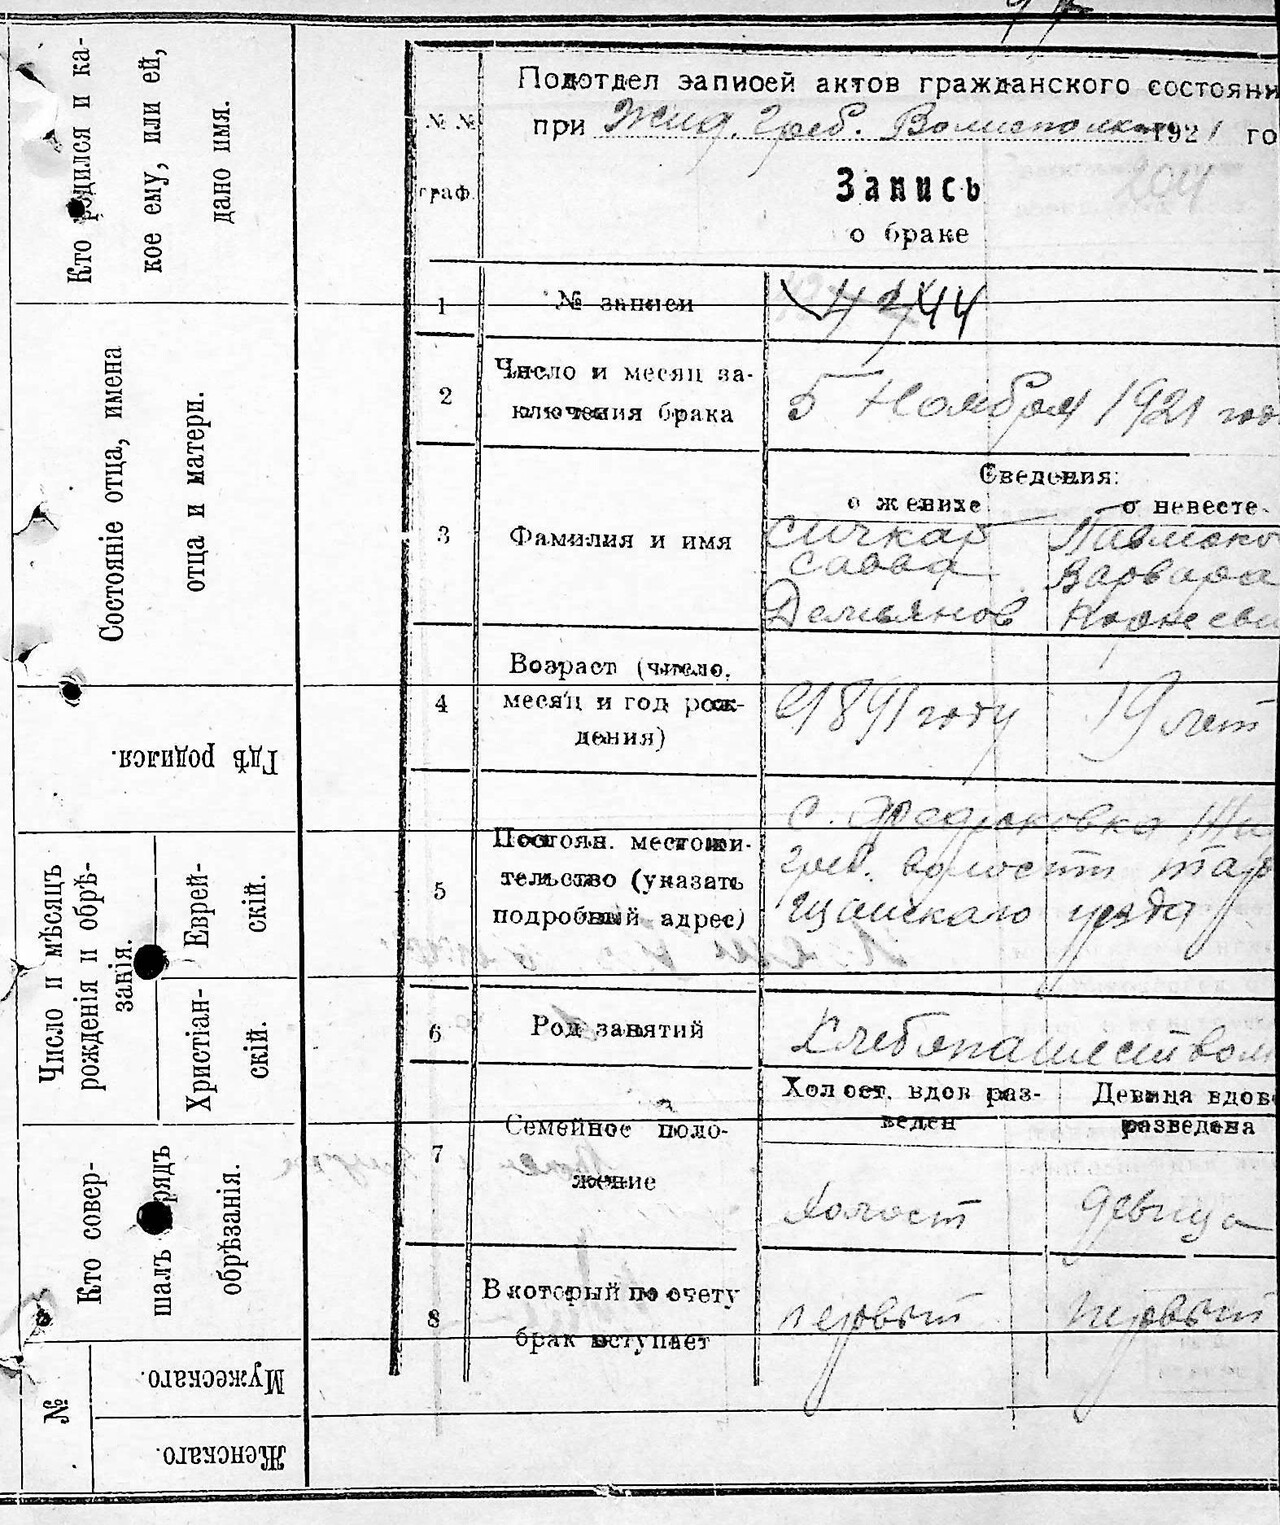 Кто родился и ка-
кое ему, или ей,
дано имя.
Состояніе отца, имена
отца и матери.
Гдѣ родился.
Число и мѣсяцъ
рожденія и обрѣ-
занія.
Еврей-
скій.
Христіан-
скій.
Кто совер-
шалъ обрядъ
обрѣзанія.
№
Мужескаго.
Женскаго.
№ №
граф.
Подотдел записей актов гражданского состояни
при Жид. Греб. Волисполкоме 1921 го
204
Запись
о браке
1 № записи 44
2 Число и месяц за-
ключения брака
5 Ноября 1921 год
Сведения:
о женихе о невесте
3 Фамилия и имя
Сичкар
Савва
Демьянов
Варвара
Корнеевн
4 Возраст (число,
месяц и год рож-
дения)
1891 году 19 лет
5 Постоян. местожи-
тельство (указать
подробный адрес)
с. Федюковка Жид
греб. волости Тара
щанского уезда
6 Род занятий Хлебопашеством
Холост. вдов раз-
веден
Девица вдов
разведена
7 Семейное поло-
жение
холост девица
8 В который по счету
брак вступает
первый первый